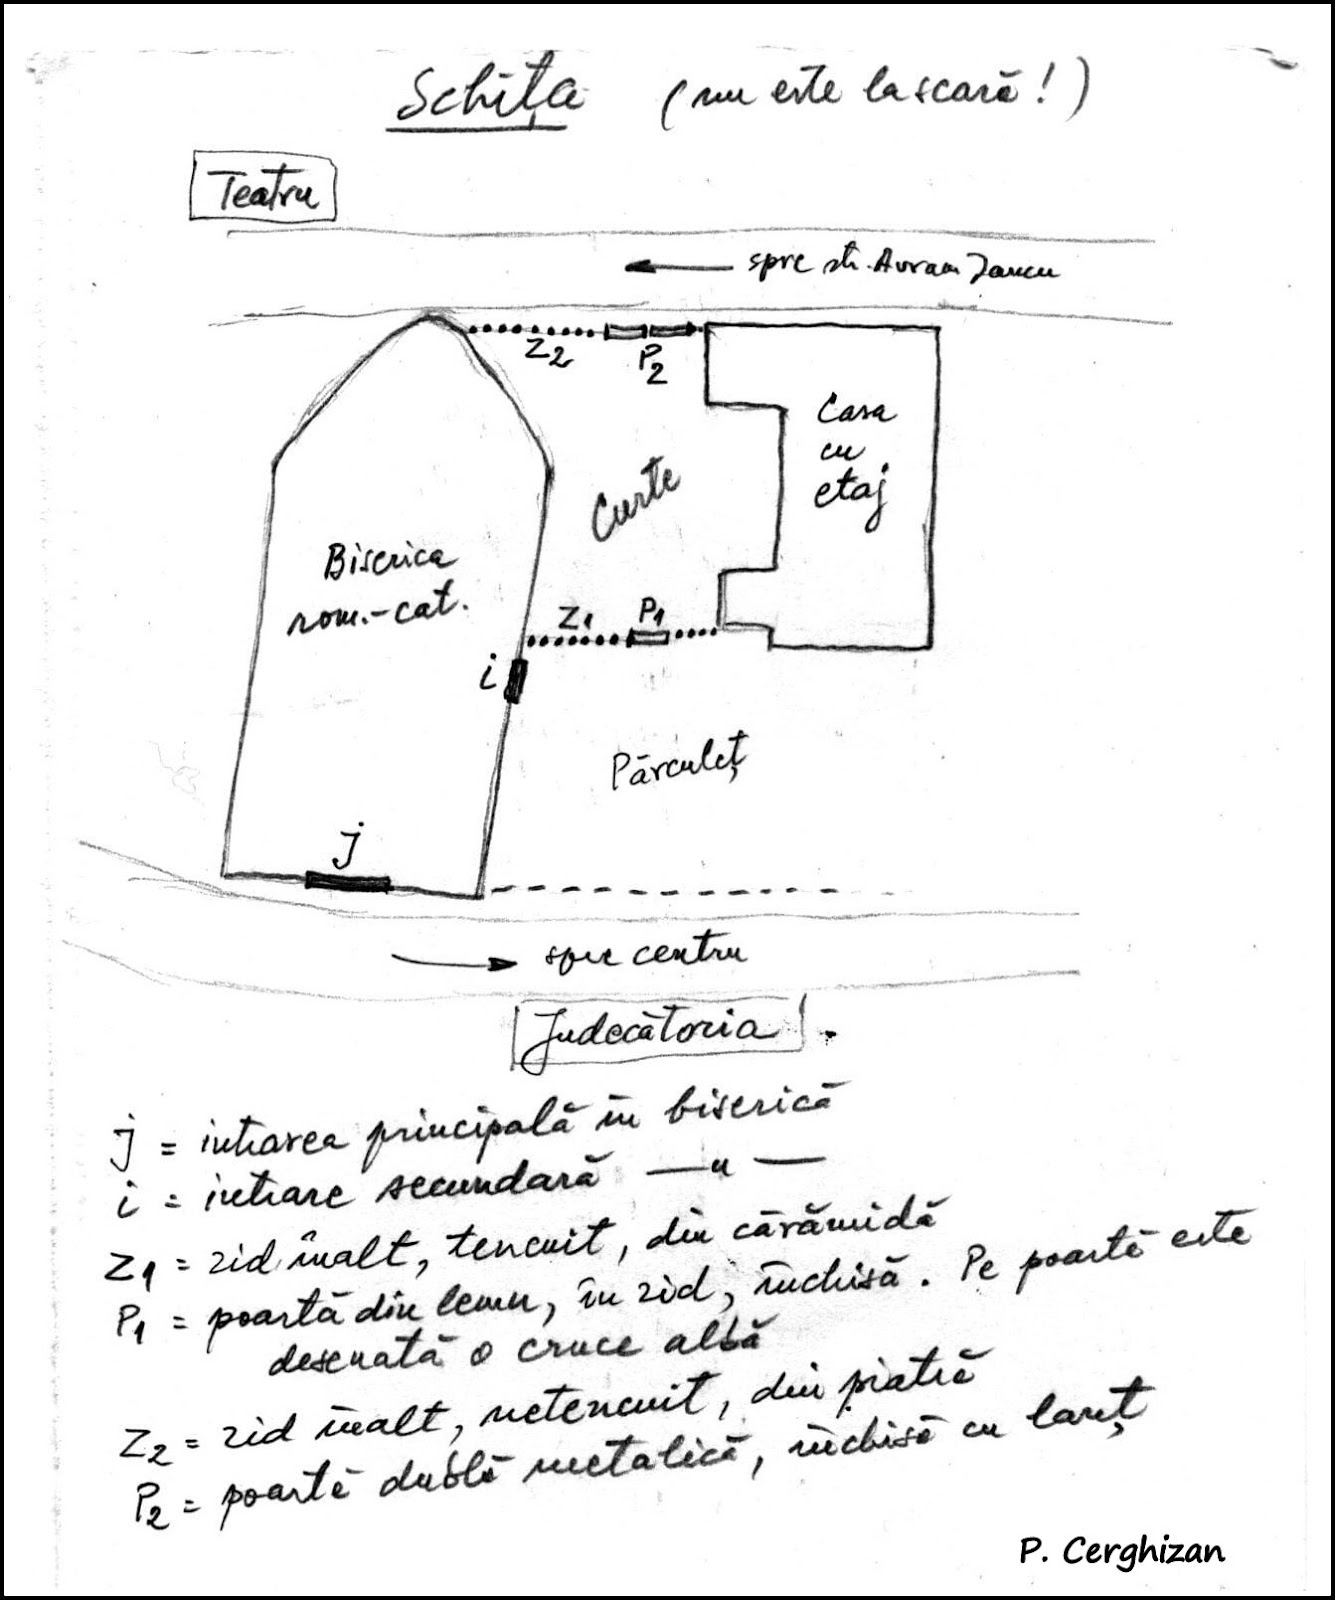 Schița (nu este la scară!)
Teatru
spre str. Avram Iancu
Z2
P2
Casa
cu
etaj
Curte
Biserica
rom.-cat.
Z1
P1
i
Părculeț
j
spre centru
Judecătoria
j = intrarea principală în biserică
i = intrare secundară —〃—
Z1 = zid înalt, tencuit, din cărămidă
P1 = poartă din lemn, în zid, închisă. Pe poartă este
desenată o cruce albă
Z2 = zid înalt, netencuit, din piatră
P2 = poartă dublă metalică, închisă cu lanț
P. Cerghizan